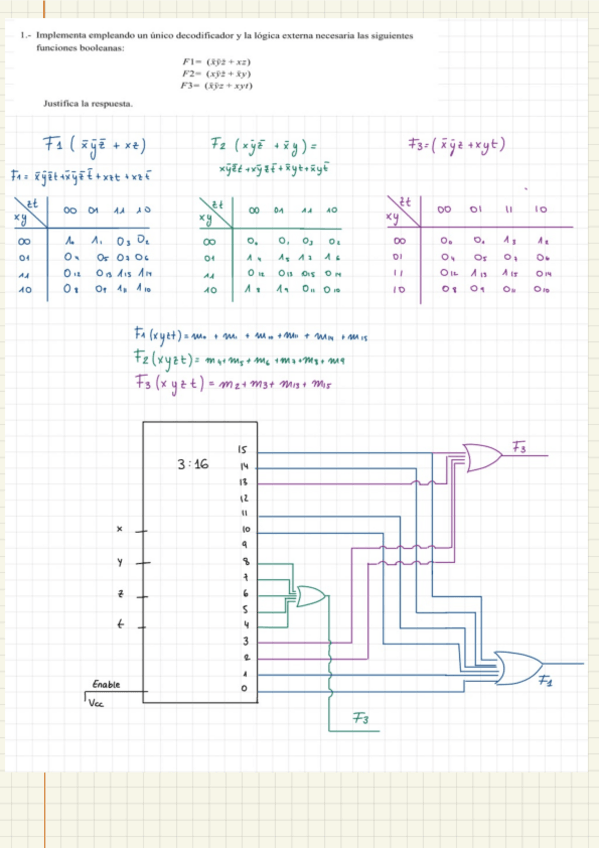 1.- Implementa empleando un único decodificador y la lógica externa necesaria las siguientes
funciones booleanas:
F1= (x̄ȳz̄ + xz)
F2= (xȳz̄ + x̄y)
F3= (x̄ȳz + xyt)
Justifica la respuesta.
F1 ( x̄ ȳ z̄ + xz)
F2 ( xȳz̄ + x̄ y ) =
F3=( x̄ ȳz +xyt)
F1= x̄ȳz̄t+x̄ȳz̄t̄+xzt+xzt̄
xȳz̄t+xȳz̄t̄+x̄yt+x̄yt̄
zt
xy
00 01 11 10
00 1₀ 1₁ 0₃ 0₂
01 0₄ 0₅ 0₇ 0₆
11 0₁₂ 0₁₃ 1₁₅ 1₁₄
10 0₈ 0₉ 1₁₁ 1₁₀
zt
xy
00 01 11 10
00 0₀ 0₁ 0₃ 0₂
01 1₄ 1₅ 1₇ 1₆
11 0₁₂ 0₁₃ 0₁₅ 0₁₄
10 1₈ 1₉ 0₁₁ 0₁₀
zt
xy
00 01 11 10
00 0₀ 0₁ 1₃ 1₂
01 0₄ 0₅ 0₇ 0₆
11 0₁₂ 1₁₃ 1₁₅ 0₁₄
10 0₈ 0₉ 0₁₁ 0₁₀
F1 (xyzt)= m₀ + m₁ + m₁₀ + m₁₁ + m₁₄ + m₁₅
F2(xyzt)= m₄+m₅+m₆ +m₇+m₈+m₉
F3(x y z t ) = m2+ m3+ m13+ m15
3:16
15
14
13
12
11
10
9
8
7
6
5
4
3
2
1
0
x
y
z
t
Enable
Vcc
F3
F1
F3